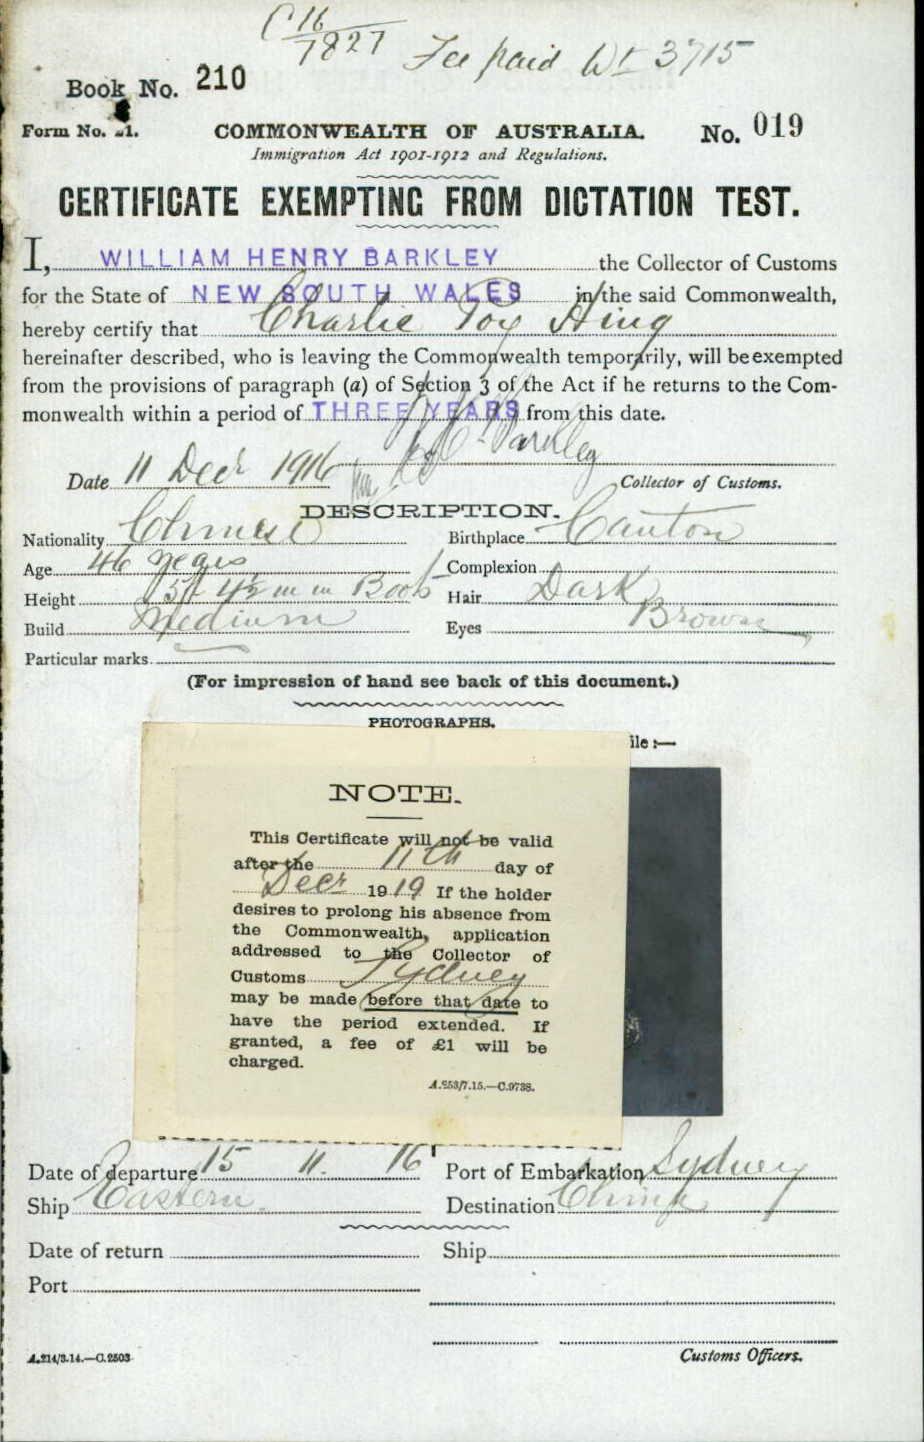 C 16
7827
Fee paid Wt 3715
Book No. 210
Form No. 21.
COMMONWEALTH OF AUSTRALIA.
No. 019
Immigration Act 1901-1912 and Regulations.
CERTIFICATE EXEMPTING FROM DICTATION TEST.
I, WILLIAM HENRY BARKLEY the Collector of Customs
for the State of NEW SOUTH WALES in the said Commonwealth,
hereby certify that Charlie Poy Hing
hereinafter described, who is leaving the Commonwealth temporarily, will be exempted
from the provisions of paragraph (a) of Section 3 of the Act if he returns to the Com-
monwealth within a period of THREE YEARS from this date.
Barkley
Date 11 Decr 1916
Collector of Customs.
DESCRIPTION.
Nationality Chinese Birthplace Canton
Age 46 years Complexion
Height 5ft 4½ in in Boots Hair Dark
Build Medium Eyes Brown
Particular marks.
(For impression of hand see back of this document.)
PHOTOGRAPHS.
ile :—
NOTE.
This Certificate will not be valid
after the 11th day of
Decr 1919 If the holder
desires to prolong his absence from
the Commonwealth, application
addressed to the Collector of
Customs Sydney
may be made before that date to
have the period extended. If
granted, a fee of £1 will be
charged.
A.253/7.15.—C.9738.
Date of departure 15 11. 16 Port of Embarkation Sydney
Ship Eastern. Destination China
Date of return Ship
Port
A.214/3.14.—C.2503
Customs Officers.